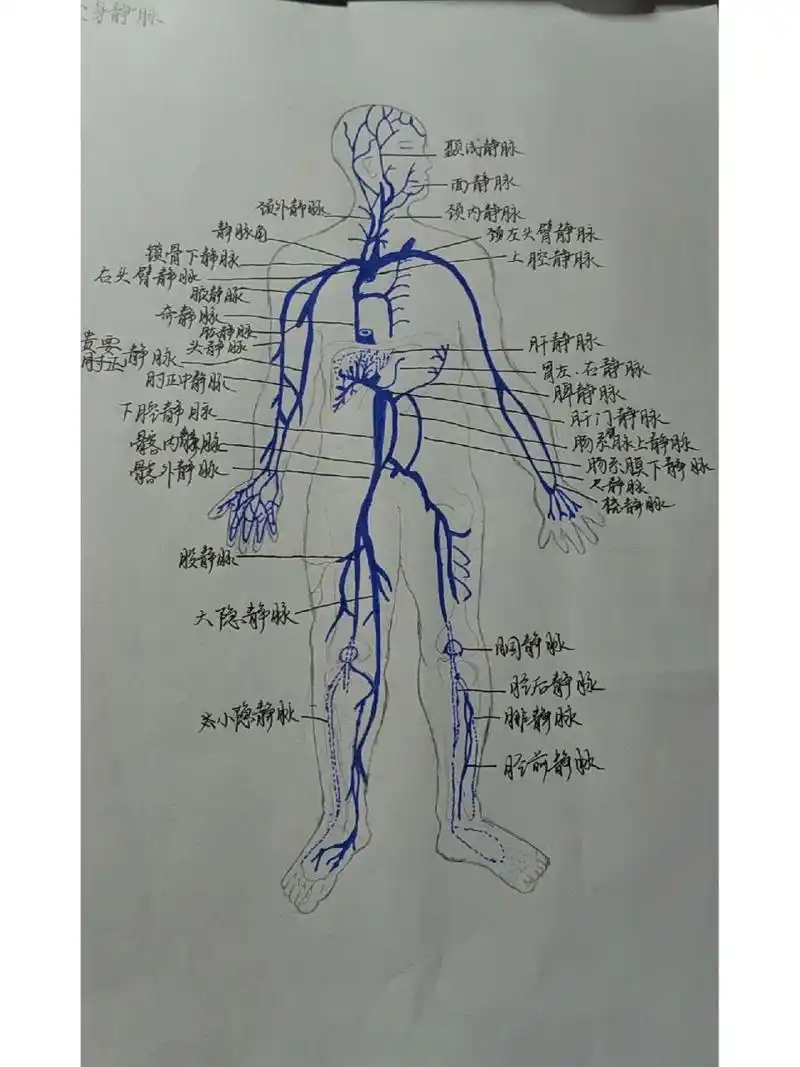 全身静脉
颞浅静脉
面静脉
颈外静脉
颈内静脉
静脉角
颈左头臂静脉
锁骨下静脉
上腔静脉
右头臂静脉
腋静脉
奇静脉
肱静脉
头静脉
肝静脉
贵要静脉
胃左、右静脉
肘正中静脉
脾静脉
下腔静脉
肝门静脉
髂内静脉
肠系膜上静脉
髂外静脉
肠系膜下静脉
静脉
桡静脉
股静脉
大隐静脉
腘静脉
胫后静脉
小隐静脉
腓静脉
胫前静脉